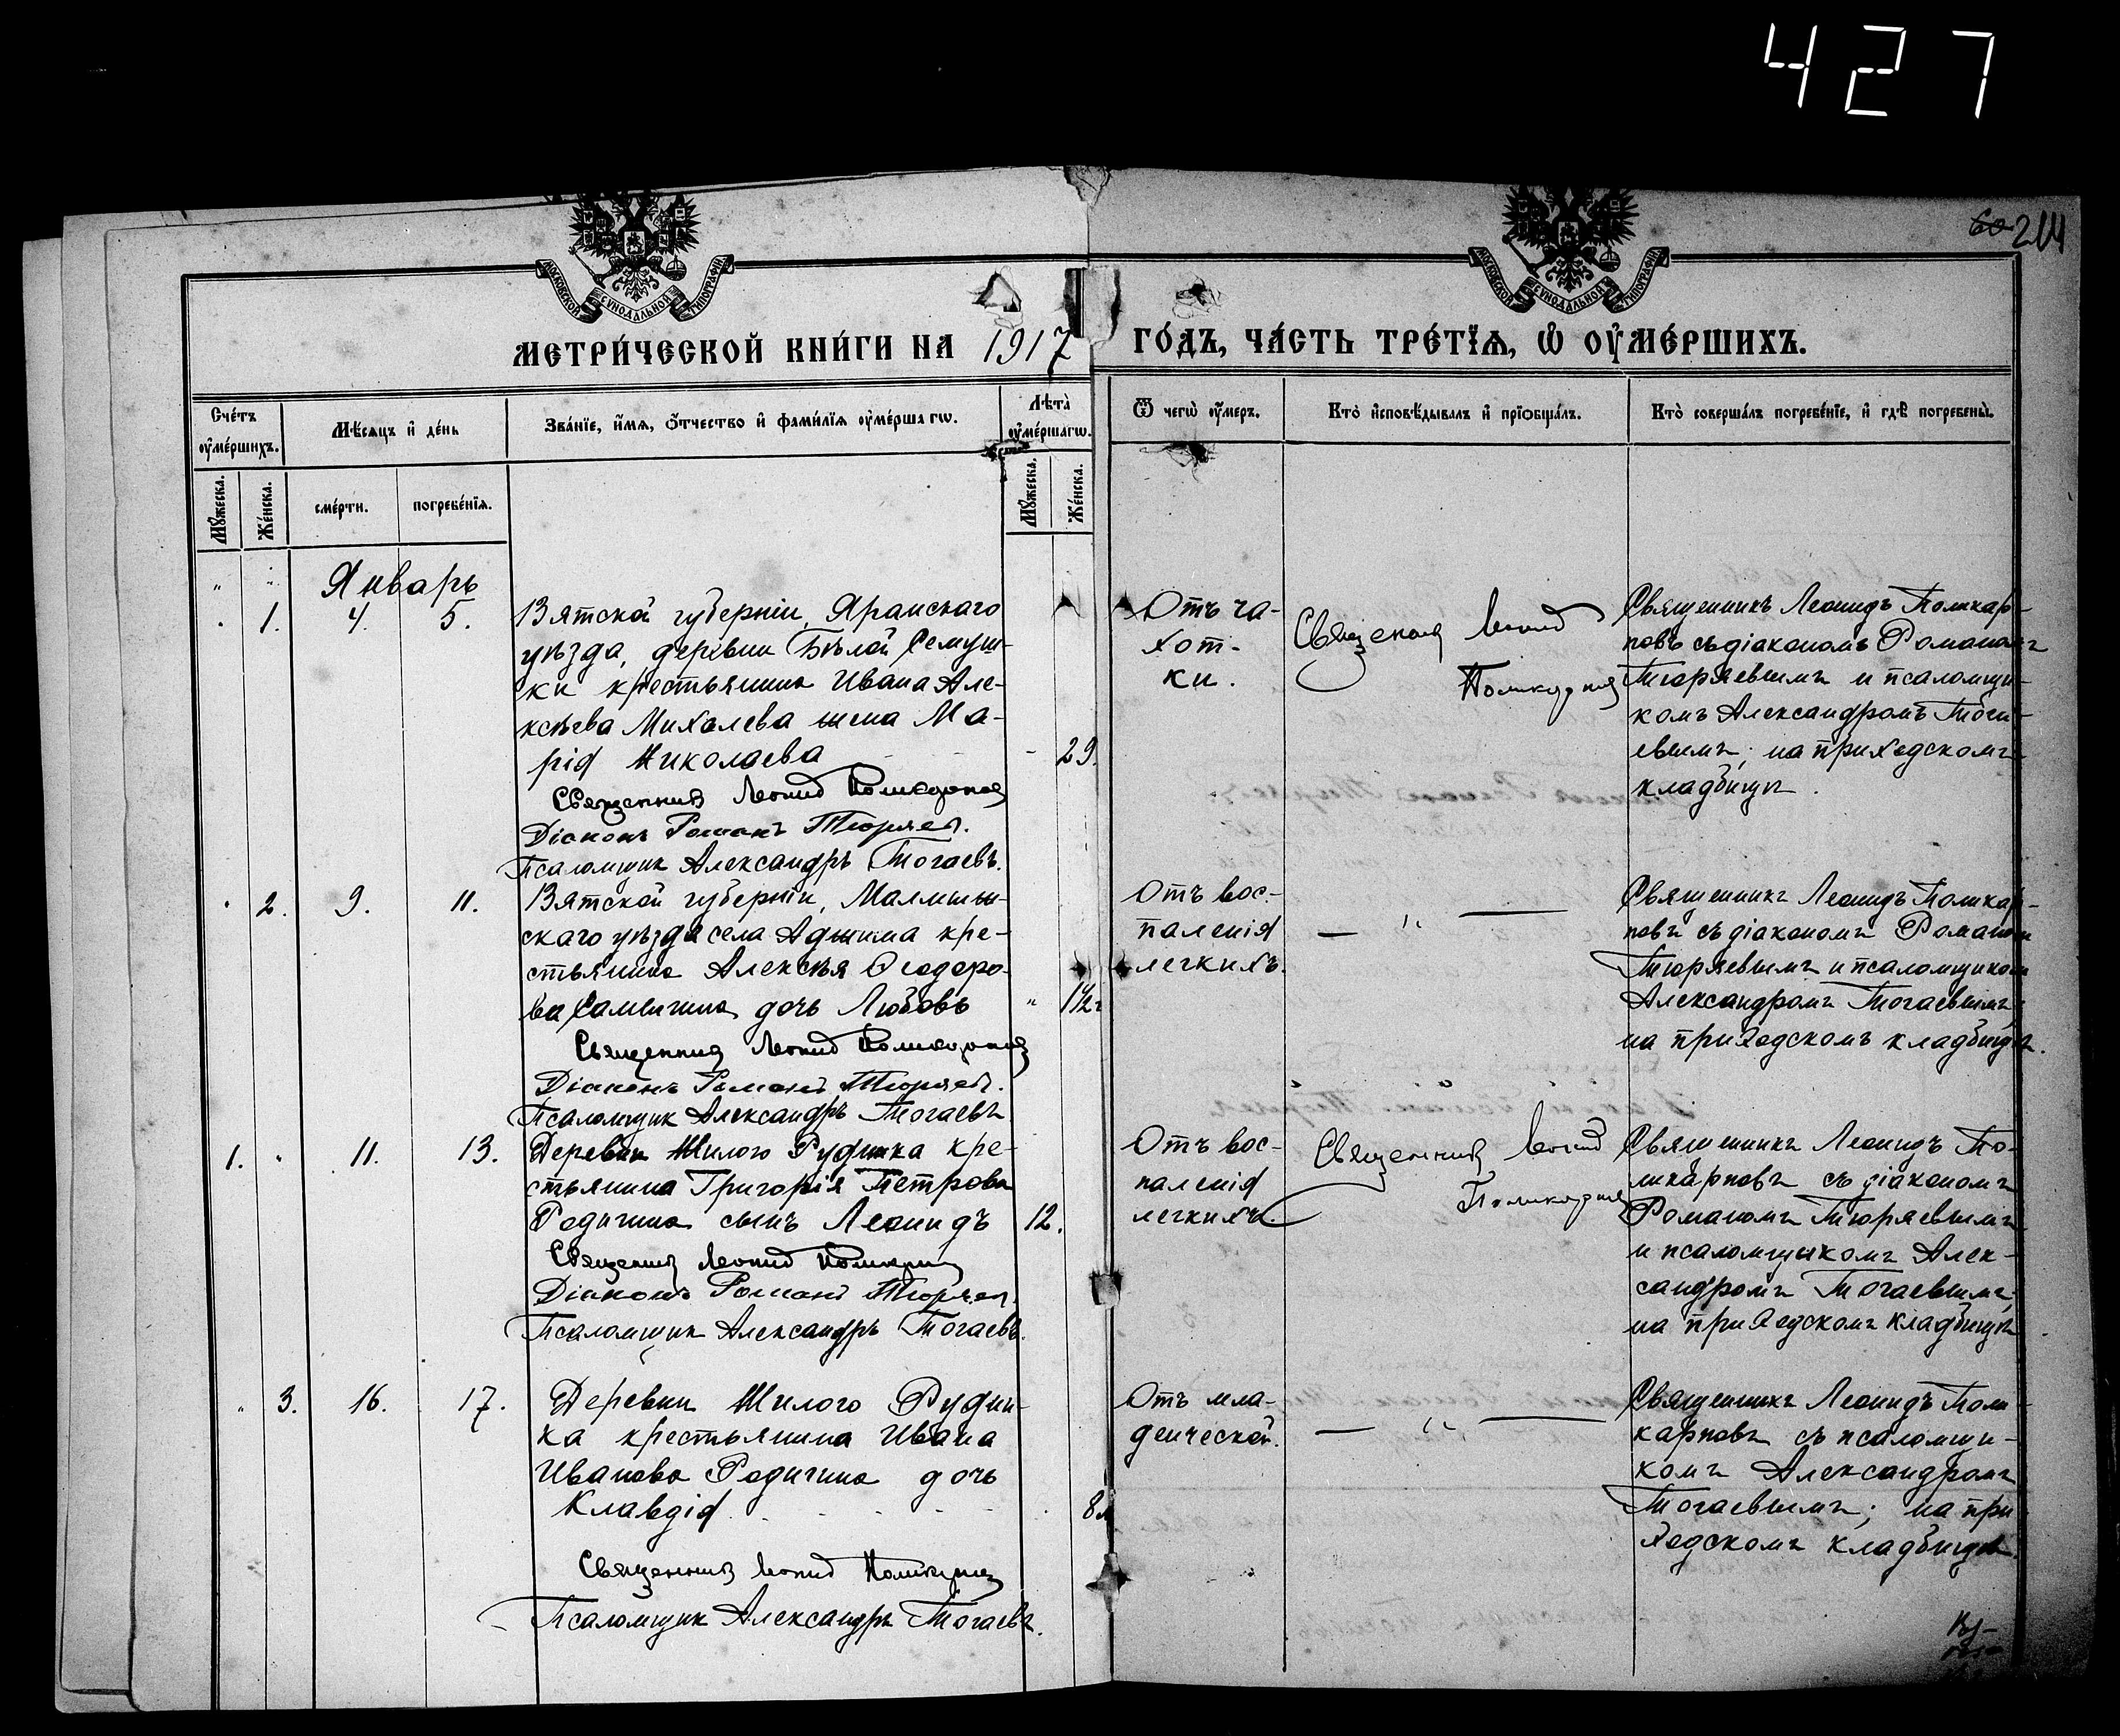 427
60 214
МОСКОВСКОЙ СѴНОДАЛЬНОЙ ТИПОГРАФІИ
МОСКОВСКОЙ СѴНОДАЛЬНОЙ ТИПОГРАФІИ
МЕТРИ́ЧЕСКОЙ КНИ́ГИ НА 1917 ГО́ДЪ, ЧА́СТЬ ТРЕ́ТЇѦ, Ѡ ОУ҆МЕ́РШИХЪ.
Сче́тъ
оу҆ме́ршихъ.
Мѣ́сѧцъ и҆ де́нь
Зва́нїе, и҆́мѧ, ѻ҆́тчество и҆ фами́лїѧ оу҆ме́ршагѡ.
Лѣ̀та
оу҆ме́ршагѡ.
Ѿ чегѡ̀ оу҆́меръ.
Кто̀ и҆сповѣ́дывалъ и҆ прїѡбща́лъ.
Кто̀ соверша́лъ погребе́нїе, и҆ гдѣ̀ погребены̀.
Мꙋ́жеска.
Же́нска.
сме́рти.
погребе́нїѧ.
Мꙋ́жеска.
Же́нска.
Январь
1. 4. 5.
Вятской губерніи, Яранскаго
уѣзда, деревни Бѣлой Семуш-
ки крестьянина Ивана Але-
ксѣева Михалева жена Ма-
рія Николаева - 29.
Священникъ Леонид Поликарповъ
Діаконъ Романъ Тюряев.
Псаломщик Александръ Тогаевъ.
Отъ ча-
хот-
ки.
Священникъ Леонид
Поликарповъ
Священникъ Леонидъ Поликар-
повъ съ діакономъ Романомъ
Тюряевымъ и псаломщи-
комъ Александромъ Тога-
евымъ; на приходскомъ
кладбищѣ.
2. 9. 11.
Вятской губерніи, Малмыж-
скаго уѣзда села Аджима кре-
стьянина Алексѣя Ѳеодоро-
ва Самыгина дочь Любовь " 1½ г
Священникъ Леонид Поликарповъ
Діаконъ Романъ Тюряев.
Псаломщик Александръ Тогаевъ
Отъ вос-
паленія
легкихъ.
— " —
Священникъ Леонидъ Поликар-
повъ съ діакономъ Романомъ
Тюряевымъ и псаломщикомъ
Александромъ Тогаевымъ;
на приходскомъ кладбищѣ.
1. " 11. 13.
Деревни Жилого Рудника кре-
стьянина Григорія Петрова
Родигина сынъ Леонидъ 12.
Священникъ Леонид Поликарповъ
Діаконъ Романъ Тюряев.
Псаломщик Александръ Тогаевъ.
Отъ вос-
паленія
легкихъ.
Священникъ Леонид
Поликарповъ
Священникъ Леонидъ По-
ликарповъ съ діакономъ
Романомъ Тюряевымъ
и псаломщикомъ Алек-
сандромъ Тогаевымъ,
на приходскомъ кладбищѣ
" 3. 16. 17.
Деревни Жилого Рудни-
ка крестьянина Ивана
Иванова Родигина дочь
Клавдія 8 м
Священникъ Леонид Поликарповъ
Псаломщик Александръ Тогаевъ.
Отъ мла-
денческой.
— " —
Священникъ Леонидъ Поли-
карповъ съ псаломщи-
комъ Александромъ
Тогаевымъ; на при-
ходскомъ кладбищѣ.